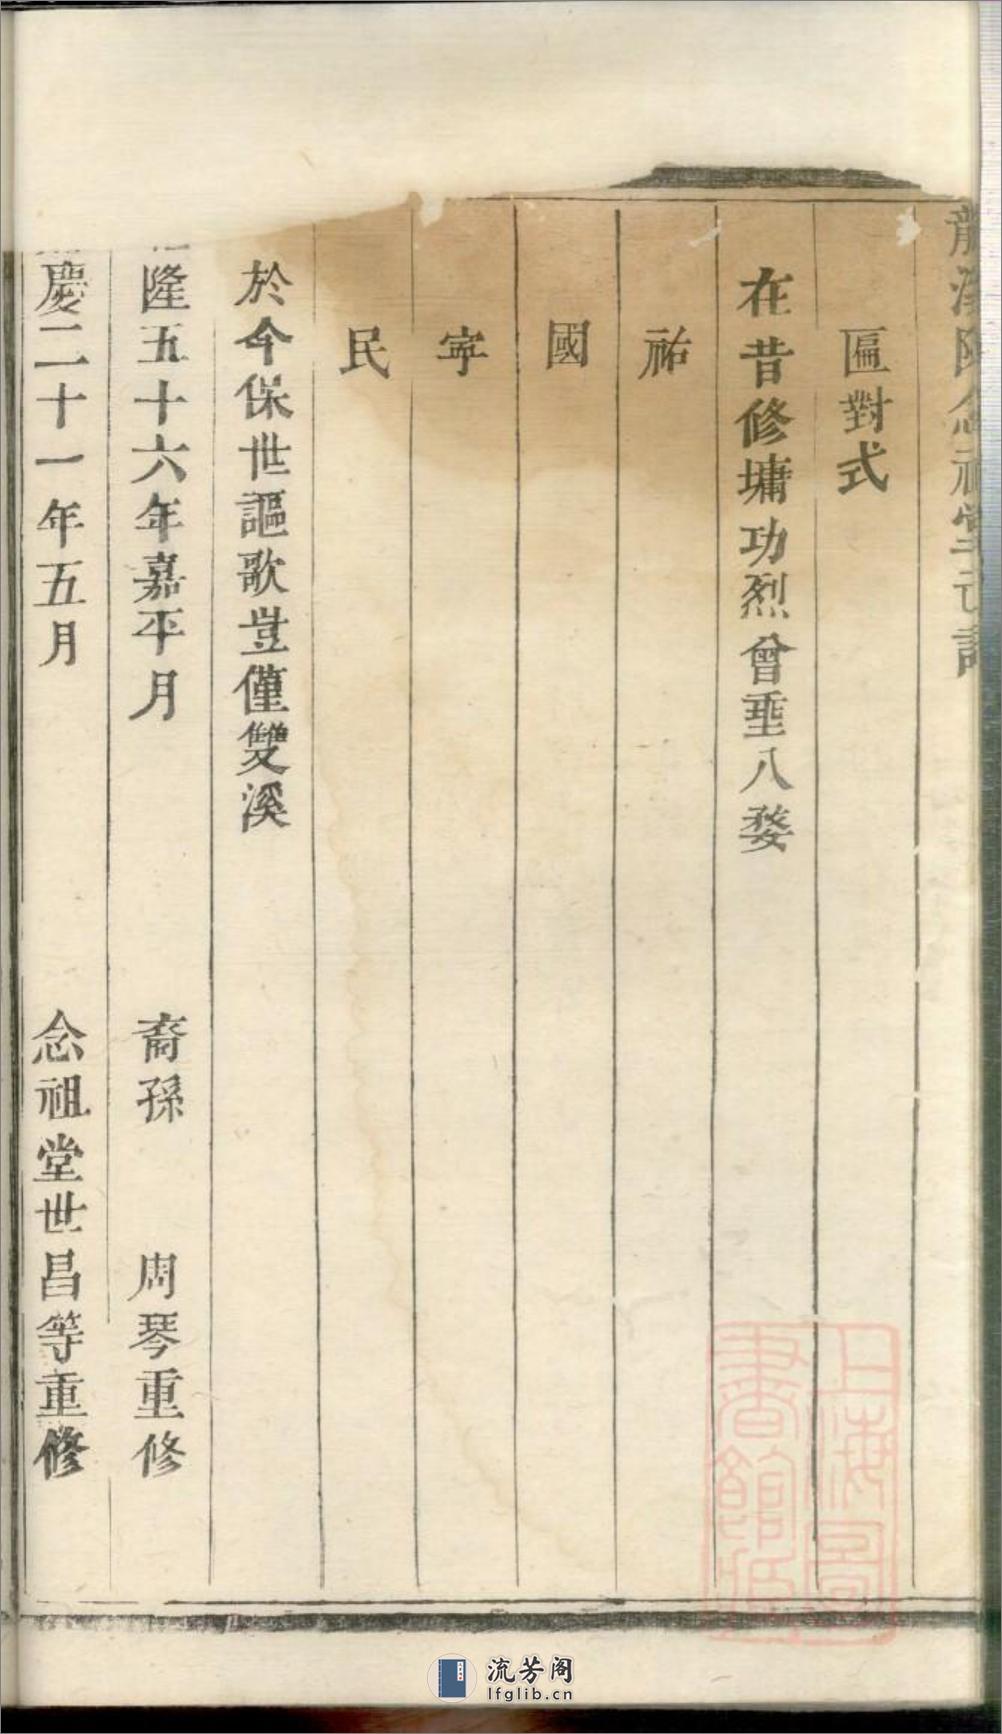 匾對式
在昔修墉功烈曾垂八婺
祐
國
寧
民
於今保世謳歌豈僅雙溪
隆五十六年嘉平月 裔孫 周琴重修
慶二十一年五月 念祖堂世昌等重修
上海圖書館藏
流芳阁
lfglib.cn